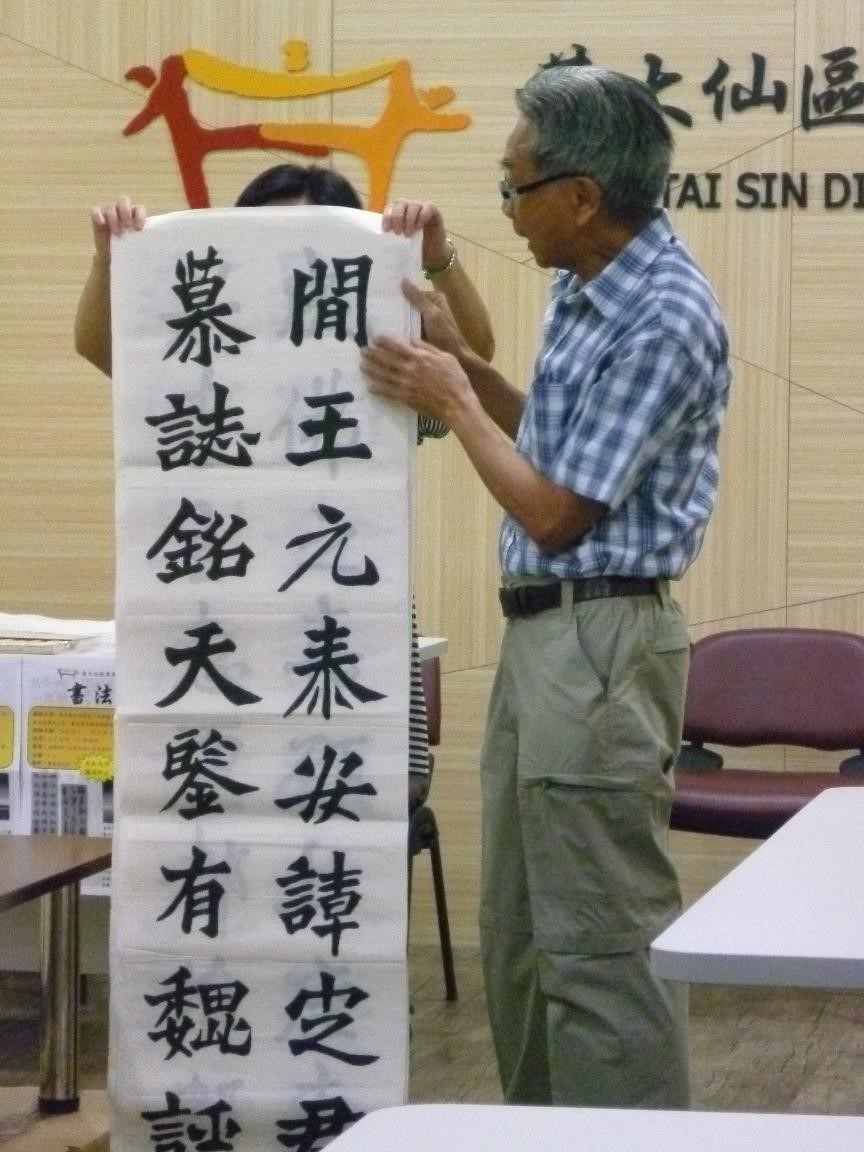 大仙區
TAI SIN DI
間王元泰安諱定君
慕誌銘天鑒有魏
書法